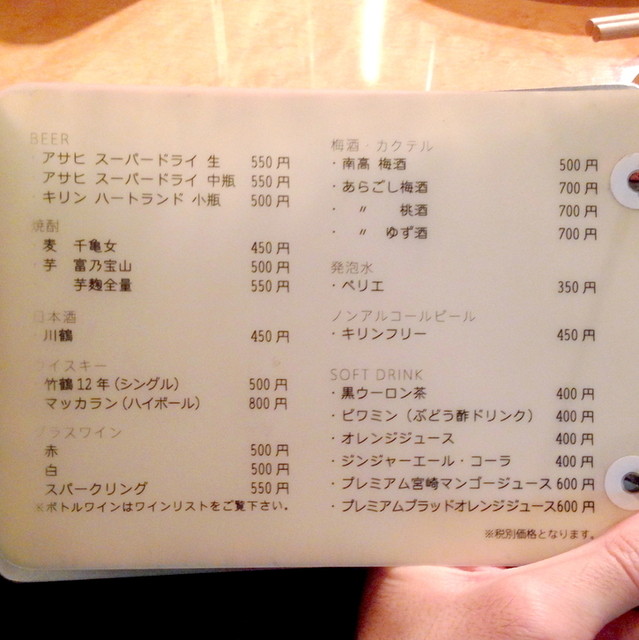 BEER
・アサヒ スーパードライ 生 550円
アサヒ スーパードライ 中瓶 550円
・キリン ハートランド 小瓶 500円
焼酎
麦 千亀女 450円
・芋 富乃宝山 500円
芋麹全量 550円
日本酒
・川鶴 450円
ウイスキー
竹鶴12年(シングル) 500円
マッカラン(ハイボール) 800円
グラスワイン
赤 500円
白 500円
スパークリング 550円
※ボトルワインはワインリストをご覧下さい。
梅酒・カクテル
・南高 梅酒 500円
・あらごし梅酒 700円
・ 〃 桃酒 700円
・ 〃 ゆず酒 700円
発泡水
・ペリエ 350円
ノンアルコールビール
・キリンフリー 450円
SOFT DRINK
・黒ウーロン茶 400円
・ビワミン(ぶどう酢ドリンク) 400円
・オレンジジュース 400円
・ジンジャーエール・コーラ 400円
・プレミアム宮崎マンゴージュース 600円
・プレミアムブラッドオレンジジュース600円
※税別価格となります。